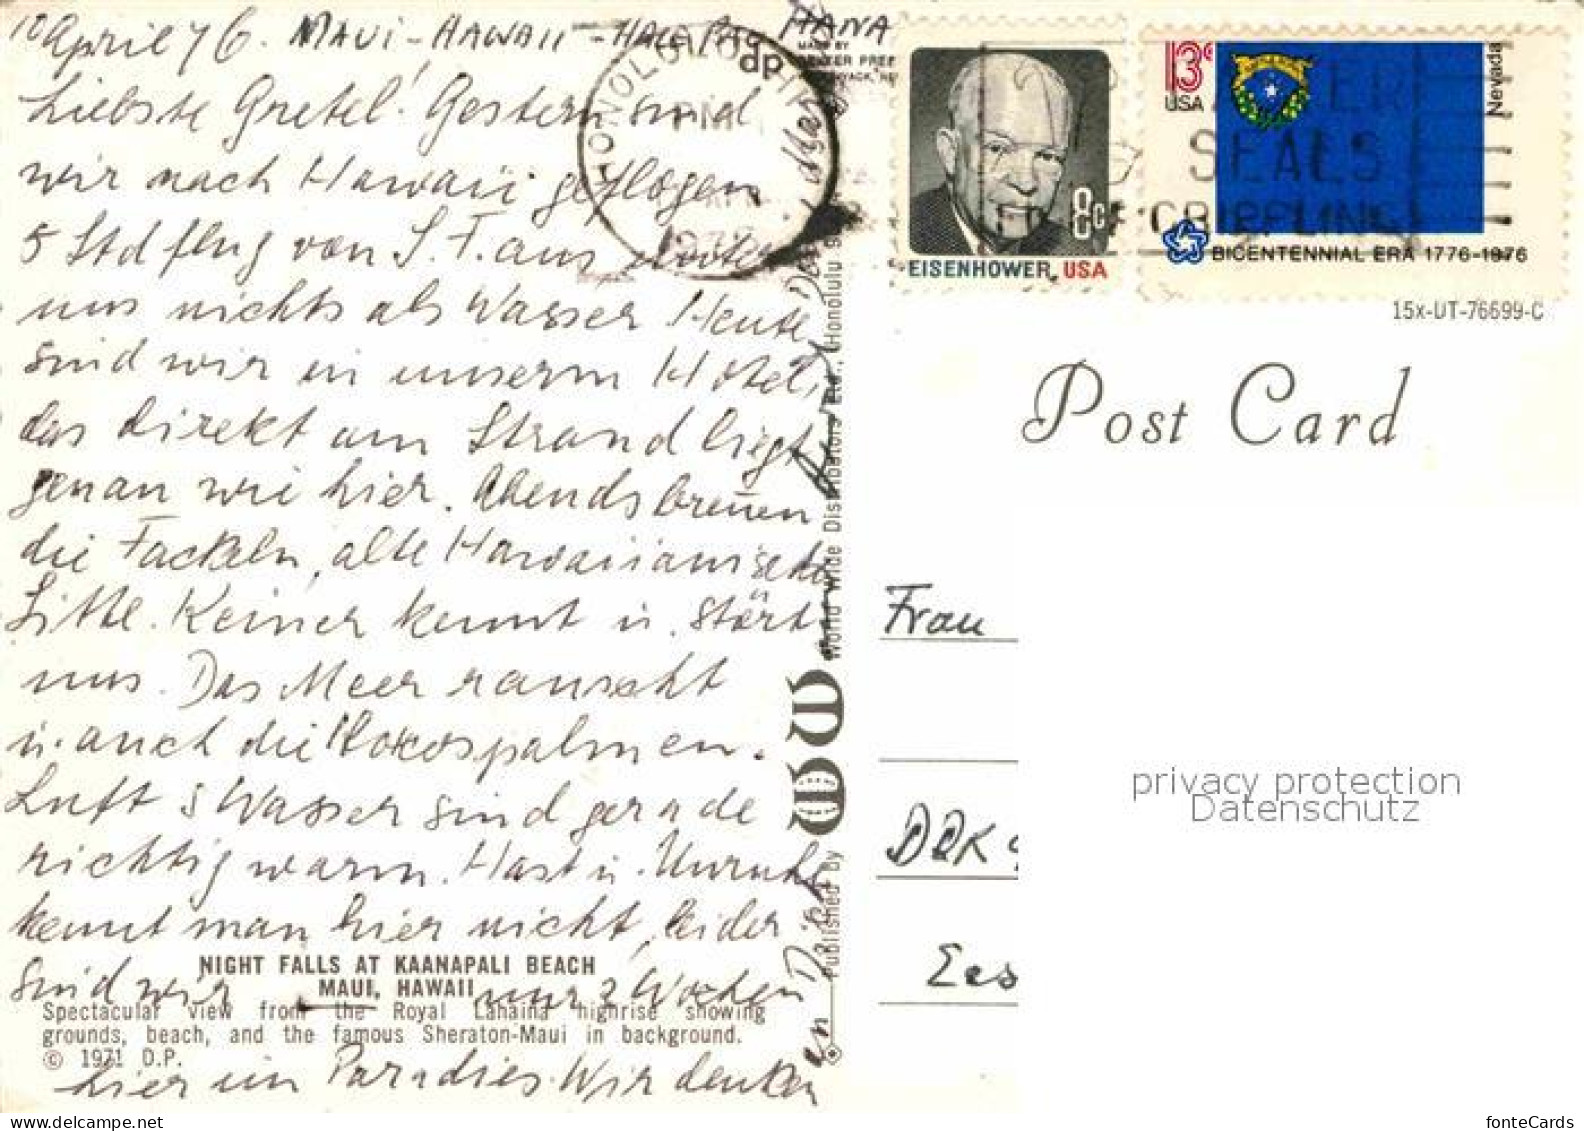 10 April 76. MAUI-HAWAII - HANA
Liebste Gretel! Gestern sind
wir nach Hawaii geflogen
5 Std flug von S.F. aus unter
uns nichts als Wasser Heute
sind wir in unserm Hotel,
das direkt am Strand liegt
genau wie hier. Abends brenen
die Fackeln, alte Hawaiianische
Sitte. Keiner kennt u. stört
uns. Das Meer rauscht
u. auch die Kokospalmen.
Luft & Wasser sind gerade
richtig warm. Hast u. Unruhe
kennt man hier nicht, leider
sind wir nur 2 Wochen
hier im Paradies. Wir denken
an Dich
NIGHT FALLS AT KAANAPALI BEACH
MAUI, HAWAII
Spectacular view from the Royal Lahaina highrise showing
grounds, beach, and the famous Sheraton-Maui in background.
© 1971 D.P.
dp
MADE BY
DEXTER PRE
NYACK,
HONOLULU
PM
Published by World Wide Distributors Ltd., Honolulu
8c
EISENHOWER, USA
13c
USA
Nevada
BICENTENNIAL ERA 1776-1976
EASTER
SEALS
CRIPPLING
15x-UT-76699-C
Post Card
Frau
DRK
Ees
privacy protection
Datenschutz
delcampe.net
fonteCards